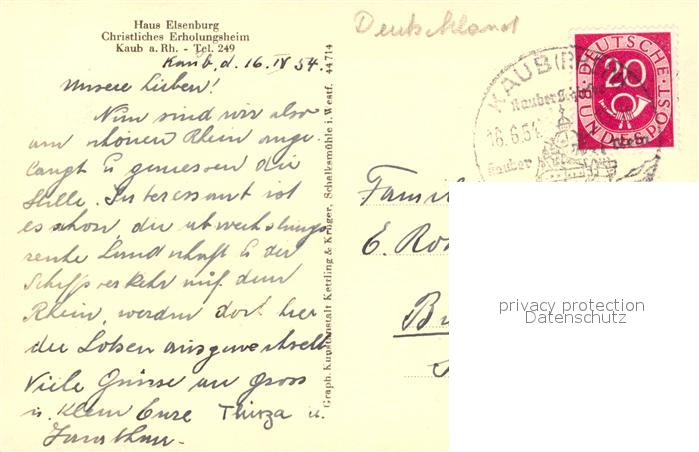 Haus Elsenburg
Christliches Erholungsheim
Kaub a. Rh. - Tel. 249
Kaub, d. 16. IV 54.
Unsere Lieben!
Nun sind wir also
am schönen Rhein ange-
langt u genießen die
Stille. Interessant ist
es schon, die abwechslungs
reiche Landschaft u der
Schiffsverkehr auf dem
Rhein, werden doch hier
die Lotsen ausgewechselt
Viele Grüsse an Gross
u. Klein Eure Thirza u.
Jonathan.
Graph. Kunstanstalt Kettling & Krüger, Schalksmühle i. Westf. 44714
Deutschland
KAUB
16.6.54
DEUTSCHE
BUNDESPOST
20
Famil
E. Ro
B
privacy protection
Datenschutz